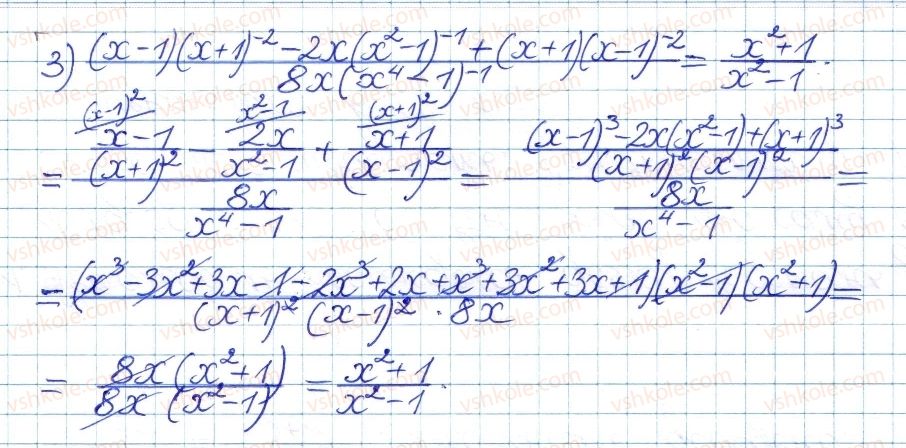 3) \frac{(x-1)(x+1)^{-2} - 2x(x^2-1)^{-1} + (x+1)(x-1)^{-2}}{8x(x^4-1)^{-1}} = \frac{x^2+1}{x^2-1}.
= \frac{\frac{x-1}{(x+1)^2}^{(x-1)^2} - \frac{2x}{x^2-1}^{x^2-1} + \frac{x+1}{(x-1)^2}^{(x+1)^2}}{\frac{8x}{x^4-1}} = \frac{\frac{(x-1)^3 - 2x(x^2-1) + (x+1)^3}{(x+1)^2(x-1)^2}}{\frac{8x}{x^4-1}} =
= \frac{(x^3 - 3x^2 + 3x - 1 - 2x^3 + 2x + x^3 + 3x^2 + 3x + 1)(x^2-1)(x^2+1)}{(x+1)^2(x-1)^2 \cdot 8x} =
= \frac{8x(x^2+1)}{8x(x^2-1)} = \frac{x^2+1}{x^2-1}.
vshkole.com